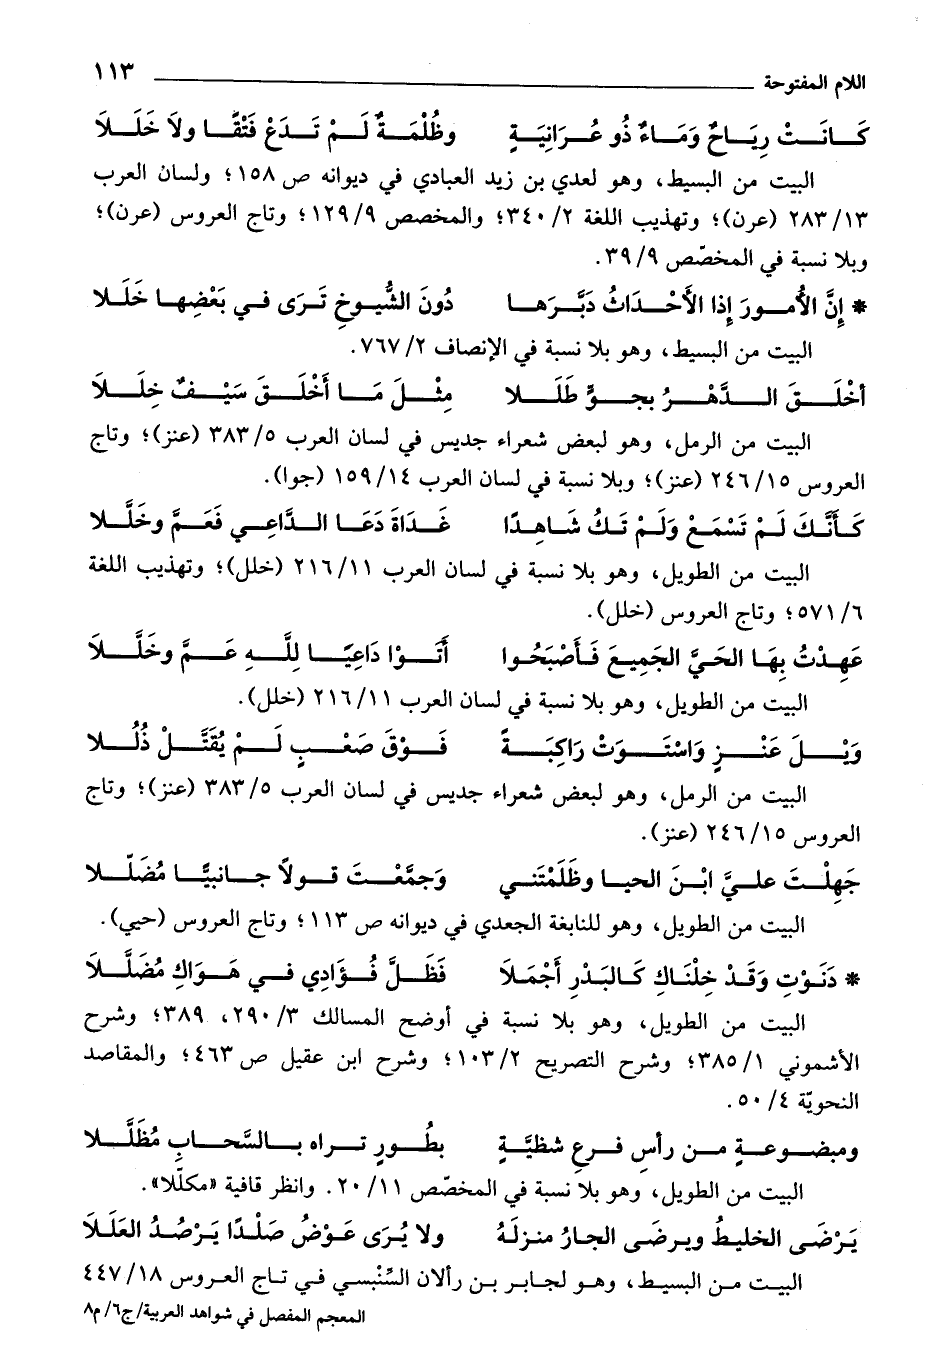 اللام المفتوحة ١١٣
كَانَتْ رِيَاحٌ وَمَاءٌ ذُو عُرَانِيَةٍ وظُلْمَةٌ لَمْ تَدَعْ فَتْقًا ولاَ خَلَلاَ
البيت من البسيط، وهو لعدي بن زيد العبادي في ديوانه ص ١٥٨؛ ولسان العرب
١٣/ ٢٨٣ (عرن)؛ وتهذيب اللغة ٢/ ٣٤٠؛ والمخصص ٩/ ١٢٩؛ وتاج العروس (عرن)؛
وبلا نسبة في المخصّص ٩/ ٣٩.
* إِنَّ الأُمورَ إِذا الأَحْدَاثُ دَبَّرَهَا دُونَ الشُّيوخِ تَرَى في بَعْضِها خَلَلا
البيت من البسيط، وهو بلا نسبة في الإنصاف ٢/ ٧٦٧.
أخْلَقَ الدَّهْرُ بجوٍّ طَلَلا مِثْلَ مَا أَخْلَقَ سَيْفٌ خِلَلاَ
البيت من الرمل، وهو لبعض شعراء جديس في لسان العرب ٥/ ٣٨٣ (عنز)؛ وتاج
العروس ١٥/ ٢٤٦ (عنز)؛ وبلا نسبة في لسان العرب ١٤/ ١٥٩ (جوا).
كَأَنَّكَ لَمْ تَسْمَعْ وَلَمْ تَكُ شَاهِدًا غَدَاةَ دَعَا الدَّاعِي فَعَمَّ وخَلَّلا
البيت من الطويل، وهو بلا نسبة في لسان العرب ١١/ ٢١٦ (خلل)؛ وتهذيب اللغة
٦/ ٥٧١؛ وتاج العروس (خلل).
عَهِدْتُ بِهَا الحَيَّ الجَمِيعَ فَأَصْبَحُوا أَتَوْا دَاعِيًا لِلَّهِ عَمَّ وخَلَّلاَ
البيت من الطويل، وهو بلا نسبة في لسان العرب ١١/ ٢١٦ (خلل).
وَيْلَ عَنْزٍ وَاسْتَوَتْ رَاكِبَةً فَوْقَ صَعْبٍ لَمْ يُقَتَّلْ ذُلُلا
البيت من الرمل، وهو لبعض شعراء جديس في لسان العرب ٥/ ٣٨٣ (عنز)؛ وتاج
العروس ١٥/ ٢٤٦ (عنز).
جَهِلْتَ عليَّ ابْنَ الحيا وظَلَمْتَني وَجمَّعْتَ قولاً جانبيًّا مُضَلّلا
البيت من الطويل، وهو للنابغة الجعدي في ديوانه ص ١١٣؛ وتاج العروس (حيي).
* دَنَوْتِ وَقَدْ خِلْنَاكِ كَالبَدْرِ أَجْمَلاَ فَظَلَّ فُؤَادِي في هَوَاكِ مُضَلَّلاَ
البيت من الطويل، وهو بلا نسبة في أوضح المسالك ٣/ ٢٩٠، ٣٨٩؛ وشرح
الأشموني ١/ ٣٨٥؛ وشرح التصريح ٢/ ١٠٣؛ وشرح ابن عقيل ص ٤٦٣؛ والمقاصد
النحويّة ٤/ ٥٠.
ومبضوعةٍ من رأسِ فرعِ شظيَّةٍ بطُورٍ تراه بالسَّحابِ مُظَلَّلا
البيت من الطويل، وهو بلا نسبة في المخصّص ١١/ ٢٠. وانظر قافية «مكلّلا».
يَرْضَى الخليطُ ويرضَى الجارُ منزلَهُ ولا يُرَى عَوْضُ صَلْدًا يَرْصُدُ العَلَلاَ
البيت من البسيط، وهو لجابر بن رألان السِّنْبسي في تاج العروس ١٨/ ٤٤٧
المعجم المفصل في شواهد العربية/ ج٦/ م٨